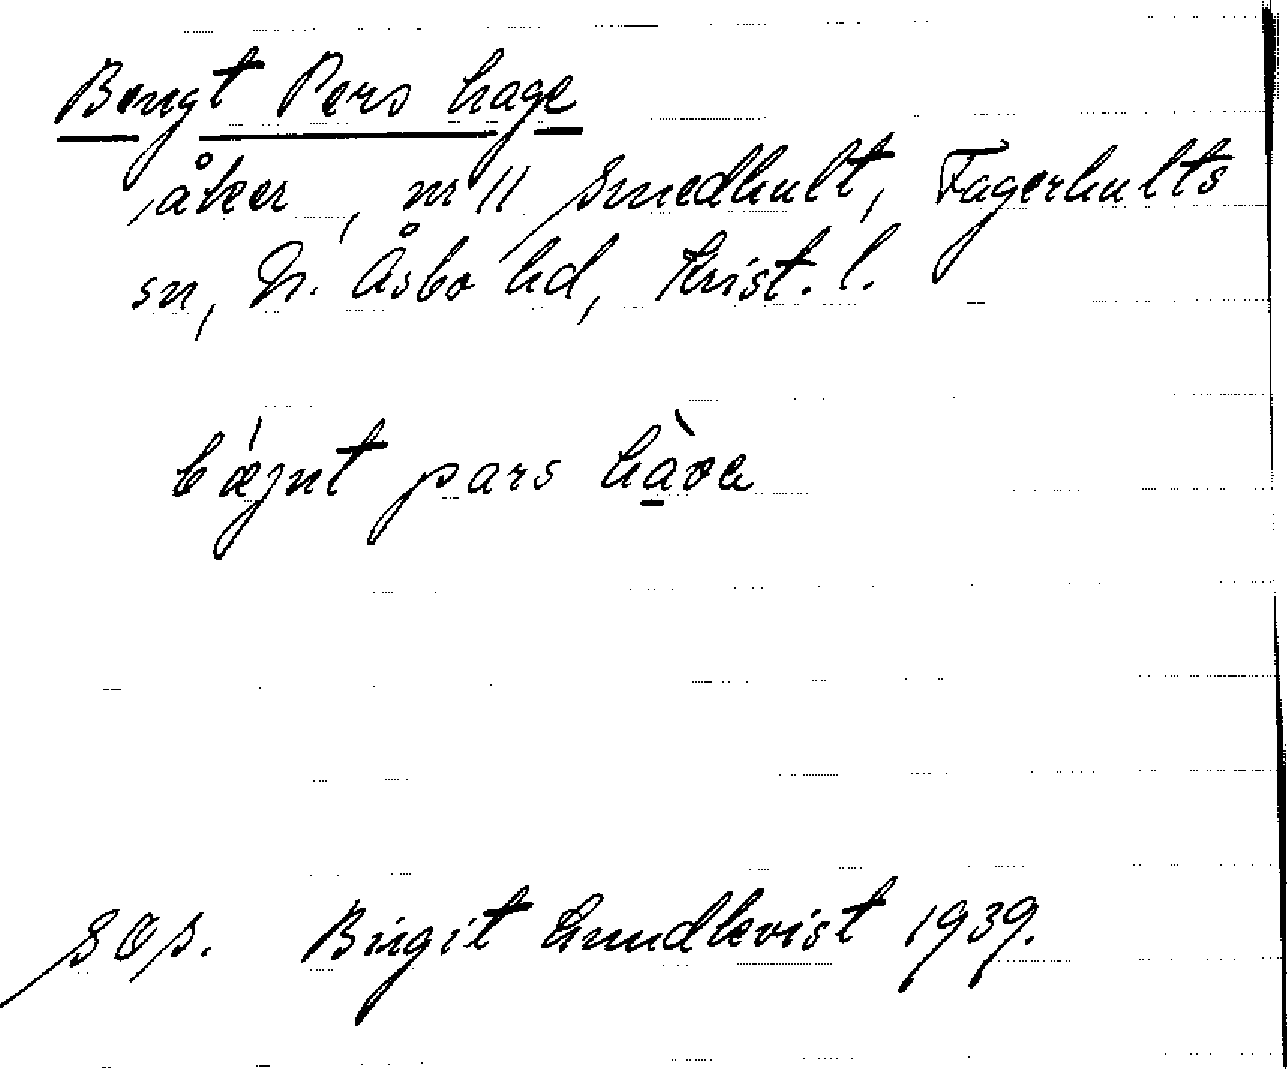 Bengt Pers hage
åker, nr 11 Smedhult, Fagerhults
sn, N. Åsbo hd, Krist. l.
bǽjnt pars hàva
SOS. Birgit Lundkvist 1939.